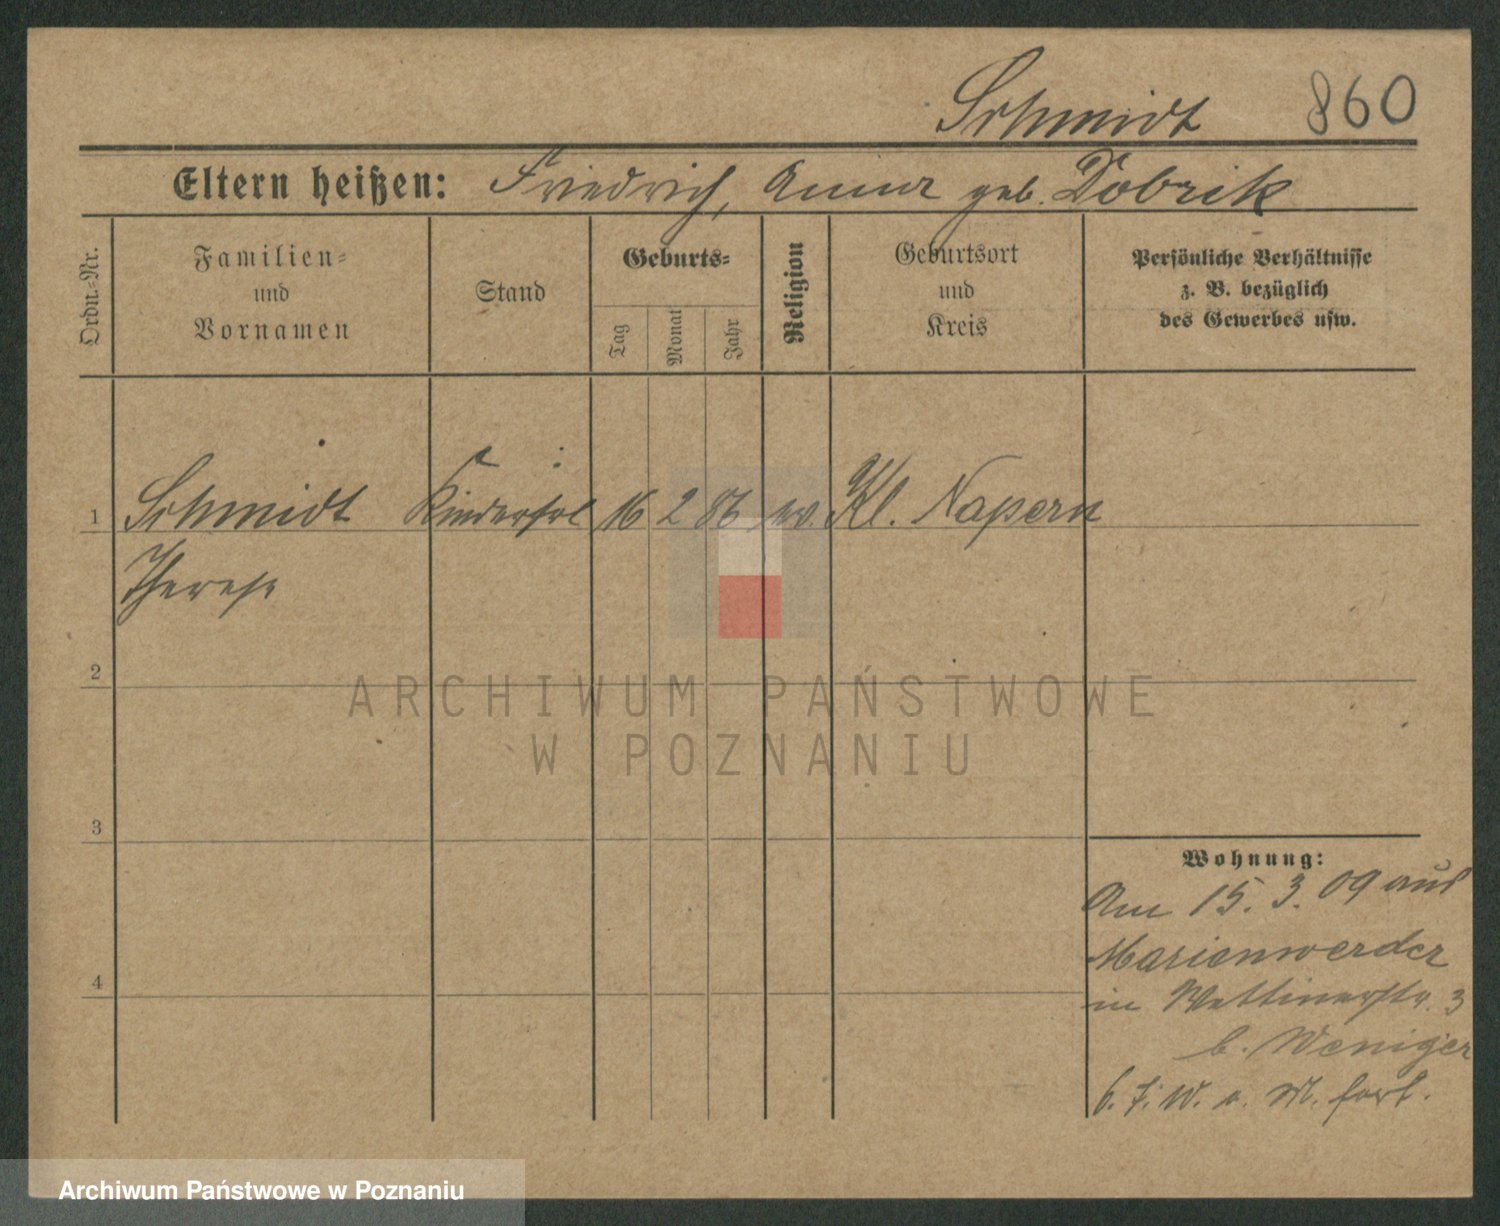 Schmidt 860
Eltern heißen: Friedrich, Anna geb. Dobrik
Ordn.-Nr.
Familien-
und
Vornamen
Stand
Geburts-
Tag
Monat
Jahr
Religion
Geburtsort
und
Kreis
Persönliche Verhältnisse
z. B. bezüglich
des Gewerbes usw.
1 Schmidt Kinderfrl 16 2 86 ev. Kl. Napern
Therese
2
ARCHIWUM PAŃSTWOWE
W POZNANIU
3
Wohnung:
Am 15. 3. 09 aus
Marienwerder
in Wettinerstr. 3
b. Weniger
W. fort.
4
Archiwum Państwowe w Poznaniu